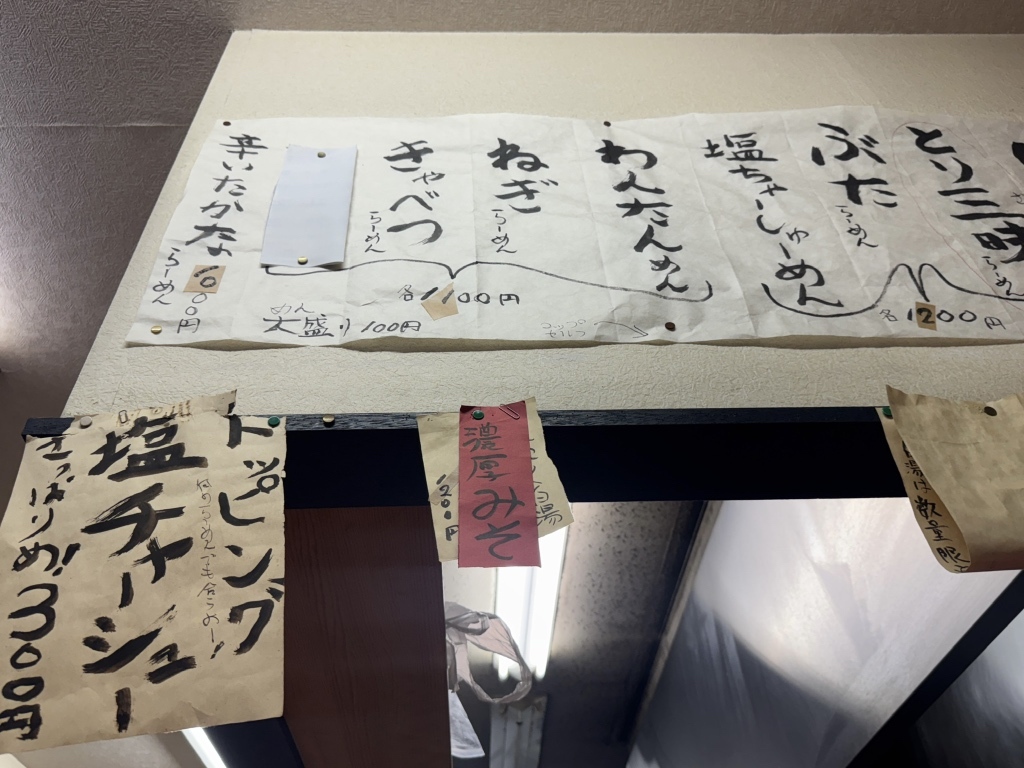 とり三昧
らーめん
ぶた
らーめん
塩ちゃーしゅーめん
各1200円
わんたんめん
ねぎ
らーめん
きゃべつ
らーめん
各1100円
コップ
セルフ
めん
大盛り100円
辛いたかな
らーめん
円
トッピング
塩チャーシュー
さっぱりめ!
300円
濃厚みそ
白湯
1200円
湯は数量限